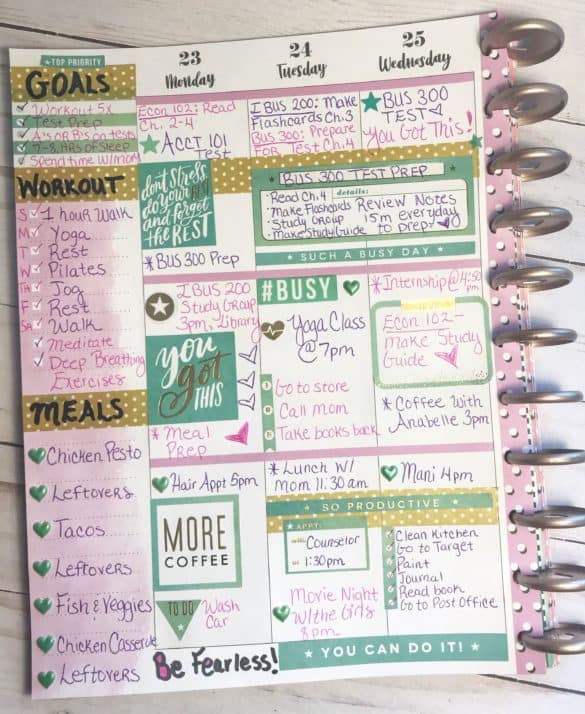 ★ TOP PRIORITY
GOALS
Workout 5x
Test Prep
A's or B's on tests
7-8 HRs of Sleep
Spend time w/mom
WORKOUT
S 1 hour Walk
M Yoga
T Rest
W Pilates
TH Jog
F Rest
Sa Walk
Meditate
Deep Breathing
Exercises
MEALS
Chicken Pesto
Leftovers
Tacos
Leftovers
Fish & Veggies
Chicken Casserole
Leftovers
23
Monday
Econ 102: Read
Ch. 2-4
ACCT 101
Test
don't stress
do your BEST
and forget
the REST
*BUS 300 Prep
I BUS 200
Study Group
3pm, Library
you
got
THIS
*Meal
Prep
Hair Appt 5pm
MORE
COFFEE
TO DO
Wash
Car
Be Fearless!
24
Tuesday
I BUS 200: Make
Flashcards Ch.3
BUS 300: Prepare
FOR Test Ch.4
BUS 300 TEST PREP
details:
•Read Ch.4
•Make Flashcards
•Study Group
•Make Study Guide
Review Notes
15m everyday
to prep
★ SUCH A BUSY DAY ★
#BUSY
Yoga Class
@ 7pm
1 Go to store
2 Call mom
3 Take books back
*Lunch w/
mom 11:30 am
★ SO PRODUCTIVE ★
★ APPT:
with: Counselor
at: 1:30pm
Movie Night
w/the Girls
8pm
★ YOU CAN DO IT! ★
25
Wednesday
BUS 300
TEST
You Got This!
*Internship@4:30
pm
Econ 102-
make Study
Guide
*Coffee with
Anabelle 3pm
Mani 4pm
Clean Kitchen
Go to Target
Paint
Journal
Read book
Go to Post Office